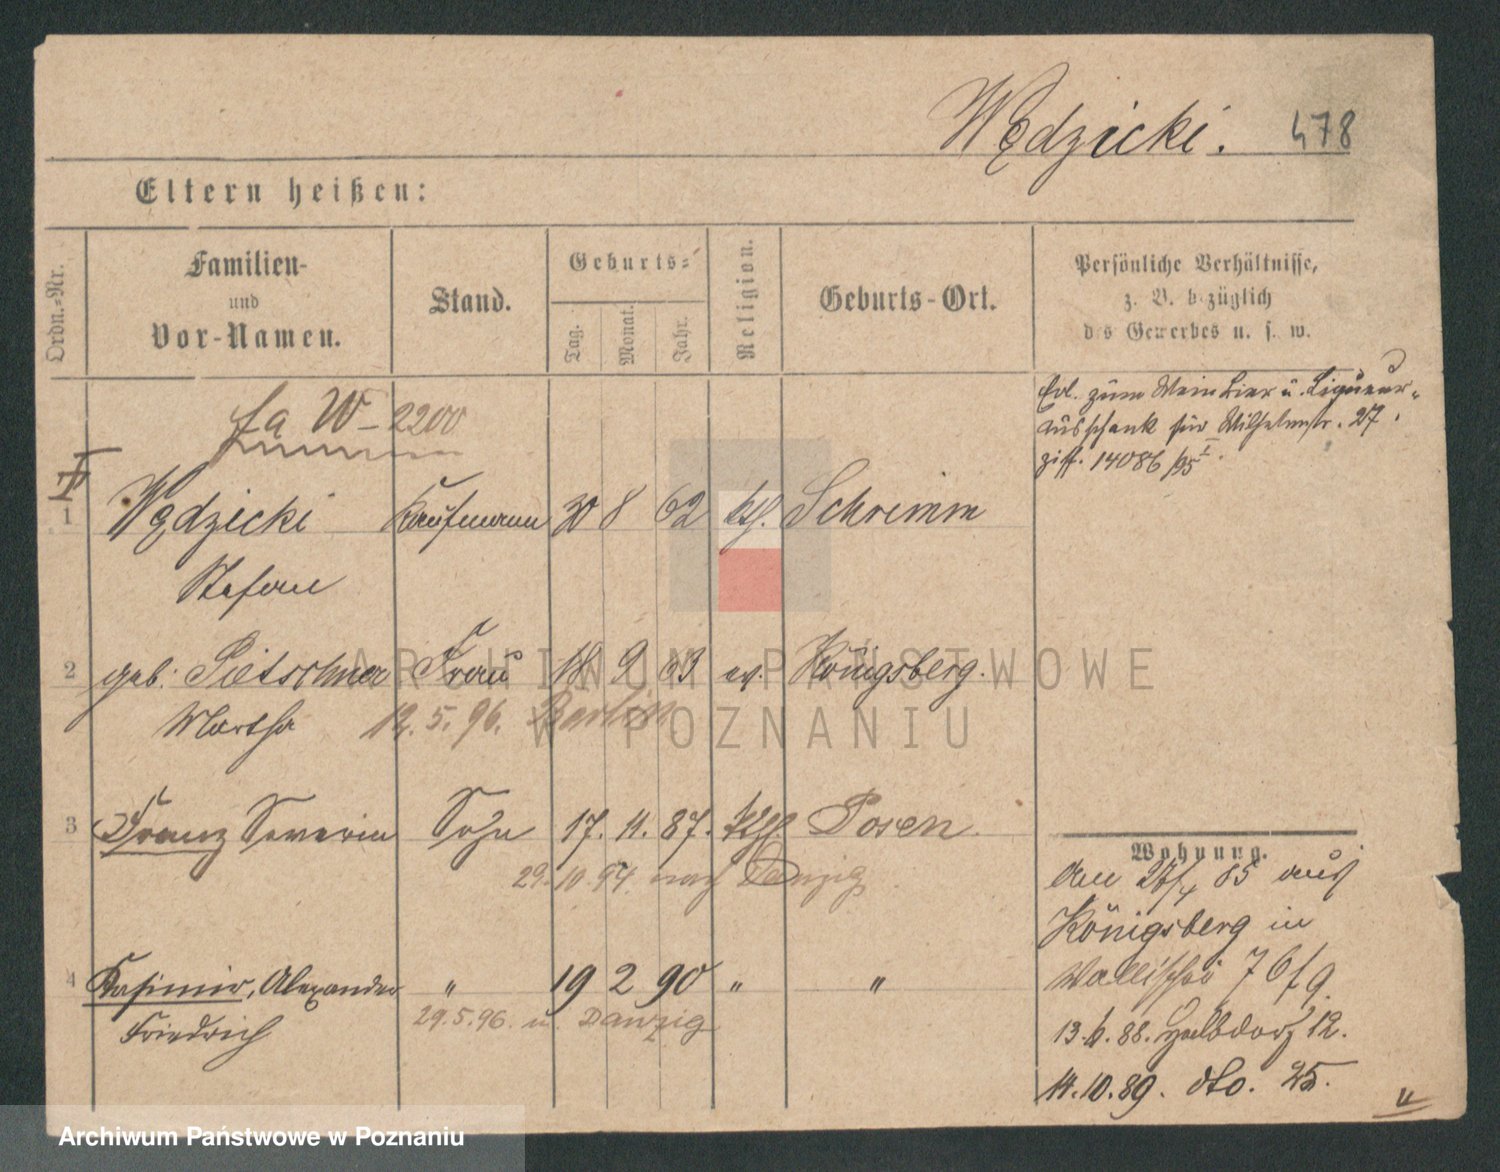 Wędzicki. 478
Eltern heißen:
Ordn.-Nr.
Familien-
und
Vor-Namen.
Stand.
Geburts-
Tag.
Monat.
Jahr.
Religion.
Geburts-Ort.
Persönliche Verhältnisse,
z. B. bezüglich
des Gewerbes u. s. w.
Erl. zum Wein Bier u. Liqueur-
ausschank für Wilhelmstr. 27.
14086/95 I.
fa W-2200
1 Wędzicki Kaufmann 30 8 62 kth. Schrimm
Stefan
2 geb. Pietschner Frau 18 9 63 ev. Königsberg.
Martha 12.5.96. Berlin
3 Franz Severin Sohn 17. 11. 87. kth Posen.
29. 10. 94. nach Danzig
4 Kasimir, Alexander " 19 2 90 " "
Friedrich 29.5.96. n. Danzig
Wohnung.
Am 27/4 85 aus
Königsberg in
Wallischei 76/9.
13.4.88. Halbdorf 12.
14.10.89. dto. 25.
ARCHIWUM PAŃSTWOWE
W POZNANIU
Archiwum Państwowe w Poznaniu